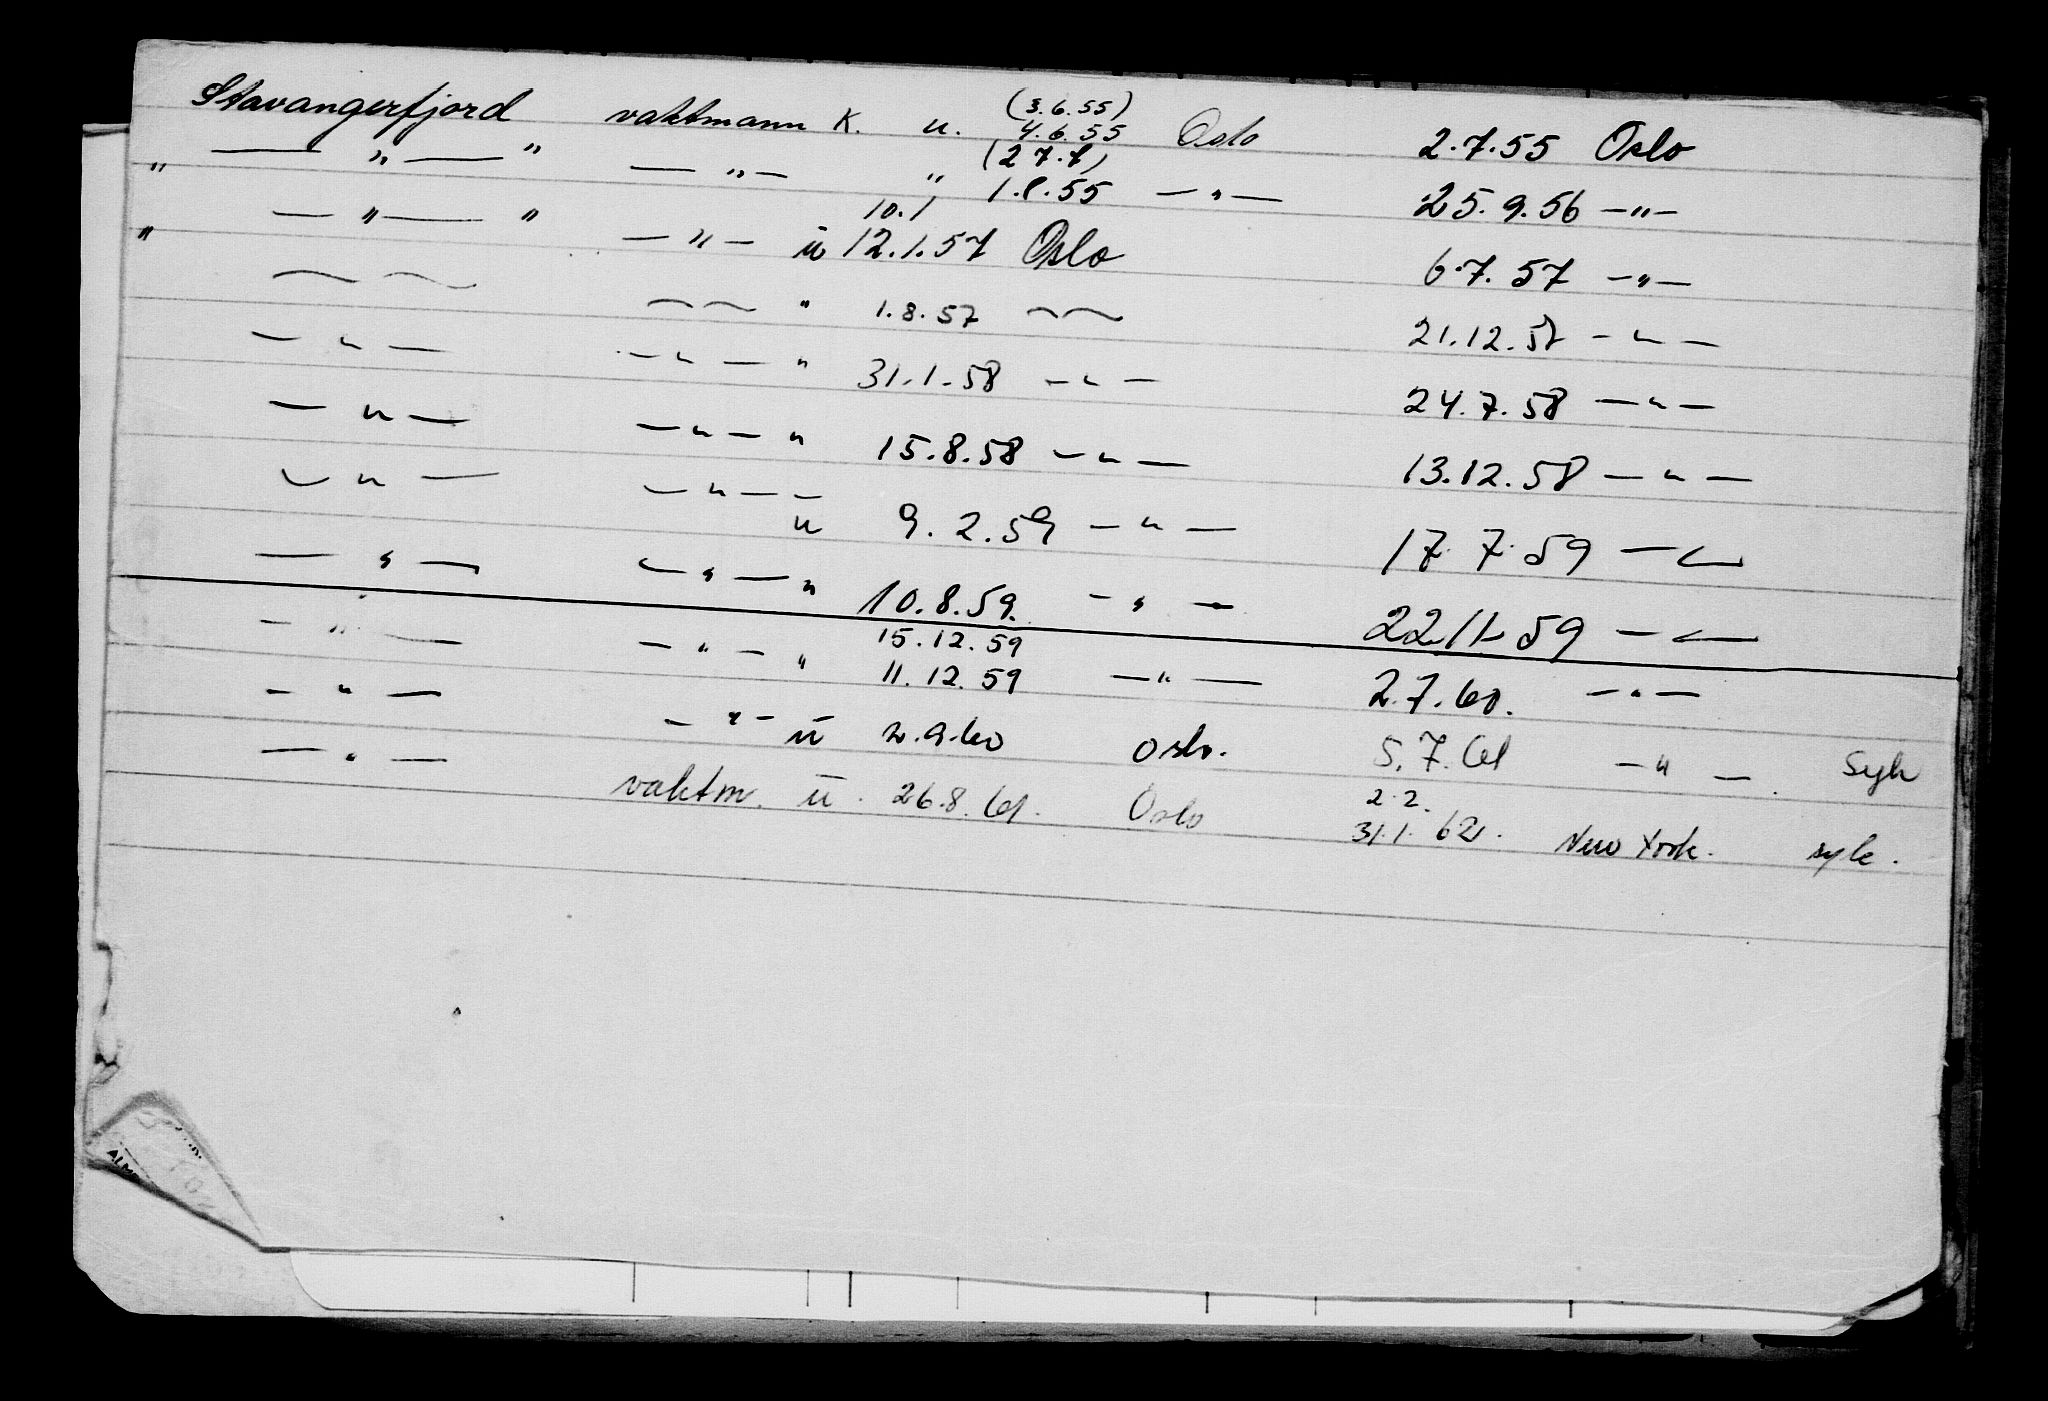 Stavangerfjord vaktmann K. u. (3.6.55) 4.6.55 Oslo 2.7.55 Oslo
" — " — " — " — " (27.7) 1.8.55 — " — 25.9.56 — " —
" — " — " — " — u 10.1 12.1.57 Oslo 6.7.57 — " —
— — — — " 1.8.57 — — 21.12.57 — " —
— " — — " — " 31.1.58 — " — 24.7.58 — " —
— " — — " — " 15.8.58 — " — 13.12.58 — " —
— " — — " — — u 9.2.59 — " — 17.7.59 — " —
— " — — " — " 10.8.59. — " — 22.11.59 — " —
— " — — " — " 15.12.59 11.12.59 — " — 2.7.60. — " —
— " — — " — u 2.9.60 Oslo. 5.7.61 — " — Syk
— " — vaktm. u. 26.8.61. Oslo 2.2. 31.1.62. New York. syk.